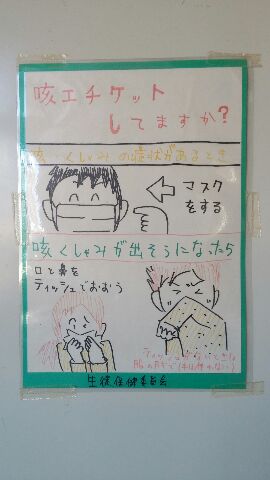 咳エチケット
してますか?
咳・くしゃみの症状があるとき
マスク
をする
咳くしゃみが出そうになったら
口と鼻を
ティッシュでおおう
ティッシュがないときは
生徒保健委員会